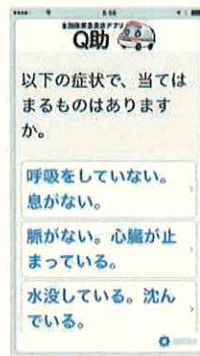 9:56
全国版救急受診アプリ
Q助
以下の症状で、当ては
まるものはあります
か。
呼吸をしていない。
息がない。
脈がない。心臓が止
まっている。
水没している。沈ん
でいる。